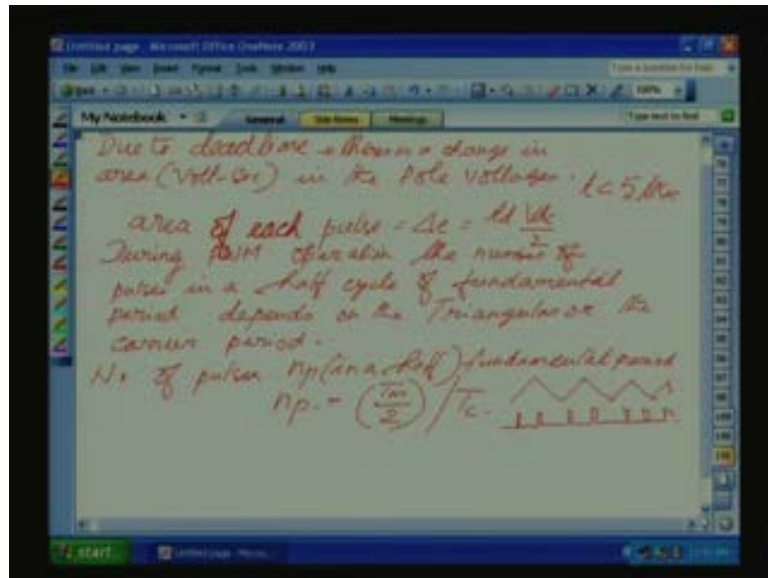 Untitled page - Microsoft Office OneNote 2003
File Edit View Insert Format Tools Window Help
100%
My Notebook General Side Notes Meetings
Due to deadtime there is a change in
area (Volt-Sec) in the Pole Voltages.
area of each pulse = Δe = td Vdc/2
During PWM operation the number of
pulses in a half cycle of fundamental
period depends on the Triangular or the
carrier period.
No of pulses np (in a half) fundamental period
np = (Tm/2) / Tc
start